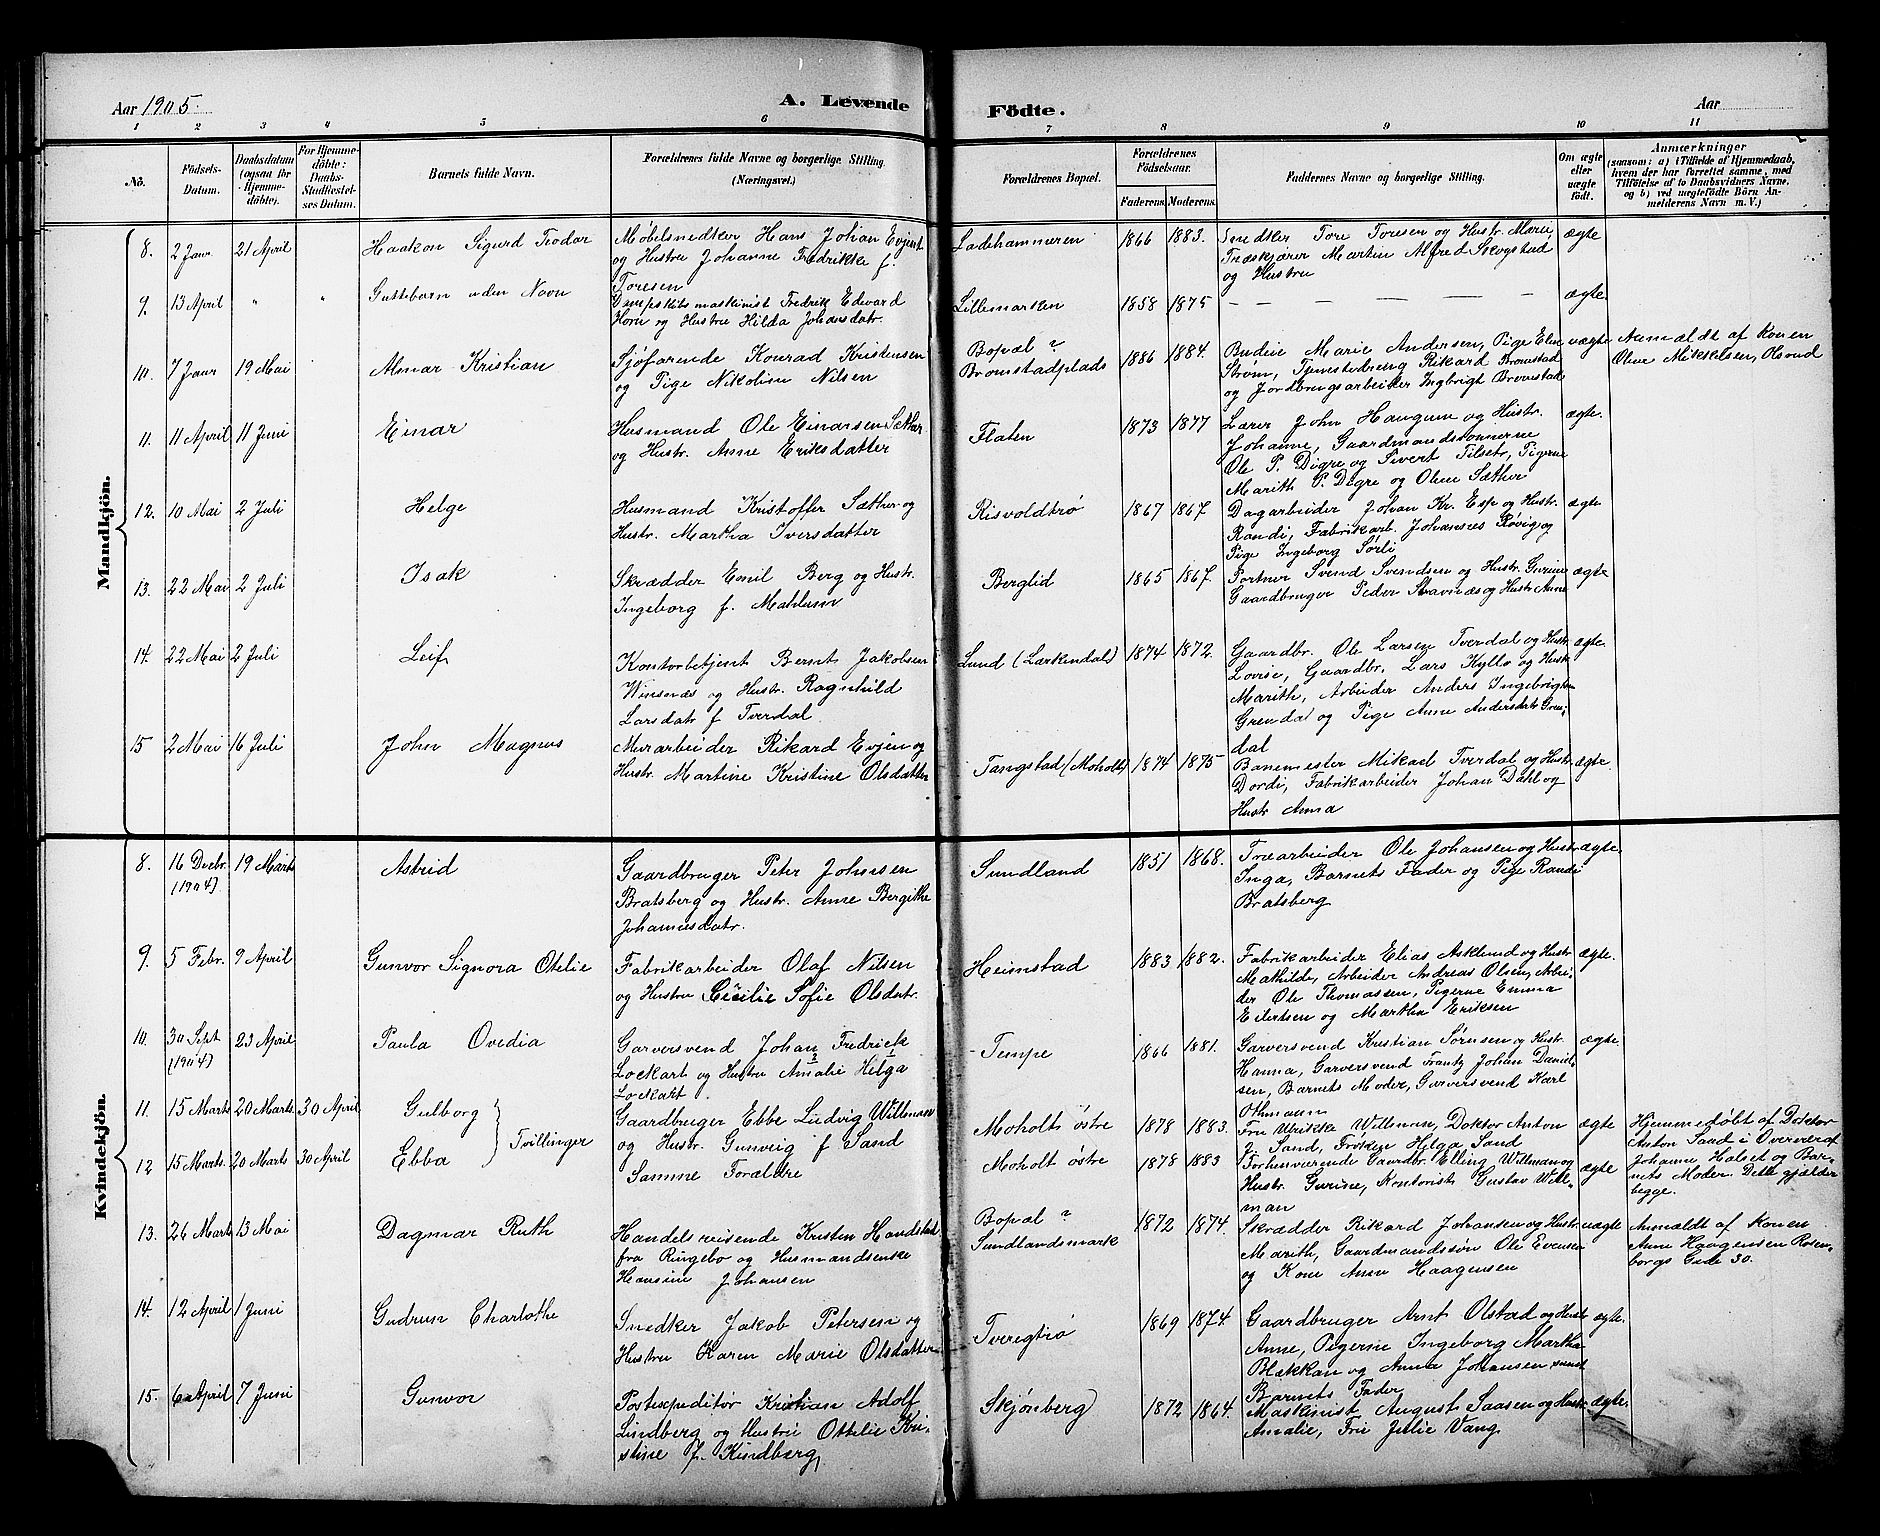 Aar 1905.
A. Levende Födte.
Aar
1 2 3 4 5 6 7 8 9 10 11
No.
Födsels-Datum.
Daabsdatum (ogsaa för Hjemme-döbte).
For Hjemme-döbte: Daabs-Stadfæstel-ses Datum.
Barnets fulde Navn.
Forældrenes fulde Navne og borgerlige Stilling. (Næringsvei.)
Forældrenes Bopæl.
Forældrenes Födselsaar.
Faderens. Moderens.
Faddernes Navne og borgerlige Stilling.
Om ægte eller uægte födt.
Anmærkninger
(saasom: a) i Tilfælde af Hjemmedaab, hvem der har forrettet samme, med Tilföielse af to Daabsvidners Navne, og b) ved uægtefödte Börn An-melderens Navn m. V.)
Mandkjön.
8. 2 Jaur 21 April Haakon Sigurd Teodor
Møbelsnedker Hans Johan Evjent
og Hustru Johanne Fredrikke f.
Toresen
Ladehammeren 1866 1883.
Snedker Tore Toresen og Hustr. Marie,
Træskjærer Martin Alfred Skogstad
og Hustru
ægte
9. 13 April " " Guttebarn uden Navn
Dampskibsmaskinist Fredrik Edvard
Horn og Hustru Hilda Johansdatr.
Lillemarken 1858 1875 — — — — — — ægte
10. 7 Jaur 19 Mai Almar Kristian
Sjøfarende Konrad Kristensen
og Pige Nikoline Nilsen
Bopæl?
Bromstadplads 1886 1884.
Budeie Marie Andersen, Pige Elen
Strøm, Tjenestedreng Rikard Bromstad
og Jordbrugsarbeider Ingbrigt Bromstad
uægte
Anmældt af Konen
Oline Mikkelsen,
11. 11 April 11 Juni Einar
Husmand Ole Einarsen Sæther
og Hustr. Anne Eriksdatter
Flaten 1873 1877
Lærer John Haugum og Hustr.
Johanne, Gaardmandssønnerne
Ole P. Digre og Sivert Tilsetr, Pigerne
Marith P. Digre og Oline Sæther
ægte.
12. 10 Mai 2 Juli Helge
Husmand Kristoffer Sæther og
Hustr. Martha Iversdatter
Risvoldtrø 1867 1867
Dagarbeider Johan Kr. Esp og Hustr.
Randi, Fabrikarb. Johannes Røvig og
Pige Ingeborg Sørli
ægte
13. 22 Mai 2 Juli Isak
Skrædder Emil Berg og Hustr.
Ingeborg f. Mahlum
Berglid 1865 1867.
Portner Svend Svendsen og Hustr. Gurine
Gaardbruger Peder Stavnæs og Hustr. Anne
ægte
14. 22 Mai 2 Juli Leif
Kontorbetjent Bernt Jakobsen
Winsnæs og Hustr. Ragnhild
Larsdatr f Tverdal.
Lund (Lærkendals) 1874 1872.
Gaardbr. Ole Larsen Tverdal og Hustr.
Lovise, Gaardbr. Lars Kyllo og Hustr.
Marith, Arbeider Anders Ingebrigtsen
Grendal og Pige Anne Andersdatr Gren-
dal
ægte.
15 2 Mai 16 Juli John Magnus
Murarbeider Rikard Evjen og
Hustr. Martine Kristine Olsdatter
Tangstad (Moholt) 1874 1875
Banemester Mikael Tverdal og Hustr.
Dordi, Fabrikarbeider Johan Dahl og
Hustr Anna
ægte.
Kvindekjön.
8. 16 Decbr. (1904) 19 Marts Astrid
Gaardbruger Peter Johnsen
Bratsberg og Hustr. Anne Bergithe
Johannesdatr.
Sundland 1851 1868.
Træarbeider Ole Johansen og Hustr.
Inga, Barnets Fader og Pige Randi
Bratsberg
ægte.
9. 5 Febr. 9 April Gunvor Signora Otelie
Fabrikarbeider Olaf Nilsen
og Hustru Cecilie Sofie Olsdatr.
Heimstad 1883 1882.
Fabrikarbeider Elias Asklund og Hustr
Mathilde, Arbeider Andreas Olsen, Arbei-
der Ole Thomassen, Pigerne Emma
Eilertsen og Martha Eriksen
ægte.
10. 30 Sept (1904) 23 April Paula Ovedia
Garversvend Johan Fredrick
Lockart og Hustru Amalie Helga
Lockart.
Tempe 1866 1881.
Garversvend Kristian Sørnsen og Hustr.
Hanna, Garversvend Frantz Johan Daniel-
sen, Barnets Moder, Garversvend Karl
Othmann
ægte.
11. 15 Marts 20 Marts. 30 April Gulborg
Gaardbruger Ebbe Ludvig Willman
og Hustr. Gunveig f Sand
Moholt østre 1878 1883.
Fru Ulrikke Willman, Doktor Anton
Sand, Frøken Helga Sand
ægte
Hjemmedøbt af Doktor
Anton Sand i Overvær af
Johanne Halset og Bar-
nets Moder. Dette gjælder
begge.
Tvillinger
12 15 Marts. 20 Marts 30 April Ebba
Samme Forældre
Moholt østre 1878 1883
Forhenværende Gaardbr. Elling Willman og
Hustr. Gurine, Kontorist Gustav Will-
man
ægte
13. 26 Marts 13 Mai Dagmar Ruth
Handelsreisende Kristen Handstad
fra Ringebo og Husmandsenke
Hansine Johansen
Bopæl?
Sundlandsmark 1872 1874.
Skrædder Rikard Johansen og Hustr
Marith, Gaardmandssøn Ole Evensen
og Kone Anne Haagensen
uægte
Anmeldt af Konen
Anne Haagensen Rosen-
borgs Gade 30.
14. 12 April 1 Juni Gudrun Charlothe
Snedker Jakob Petersen og
Hustru Karen Marie Olsdatter
Tveregtrø 1869 1874.
Gaardbruger Arnt Olstad og Hustr
Anne, Pigerne Ingeborg Martha
Blækkan og Anna Johansen samt
Barnets Fader
ægte.
15. 6 April 7 Juni Gunvor
Postexpeditør Kristian Adolf
Lindberg og Hustru Ottelie Kri-
stine f. Kindberg,
Skjønberg) 1872 1864.
Maskinist August Saasen og Hustr.
Amalie, Fru Julie Vang.
ægte.